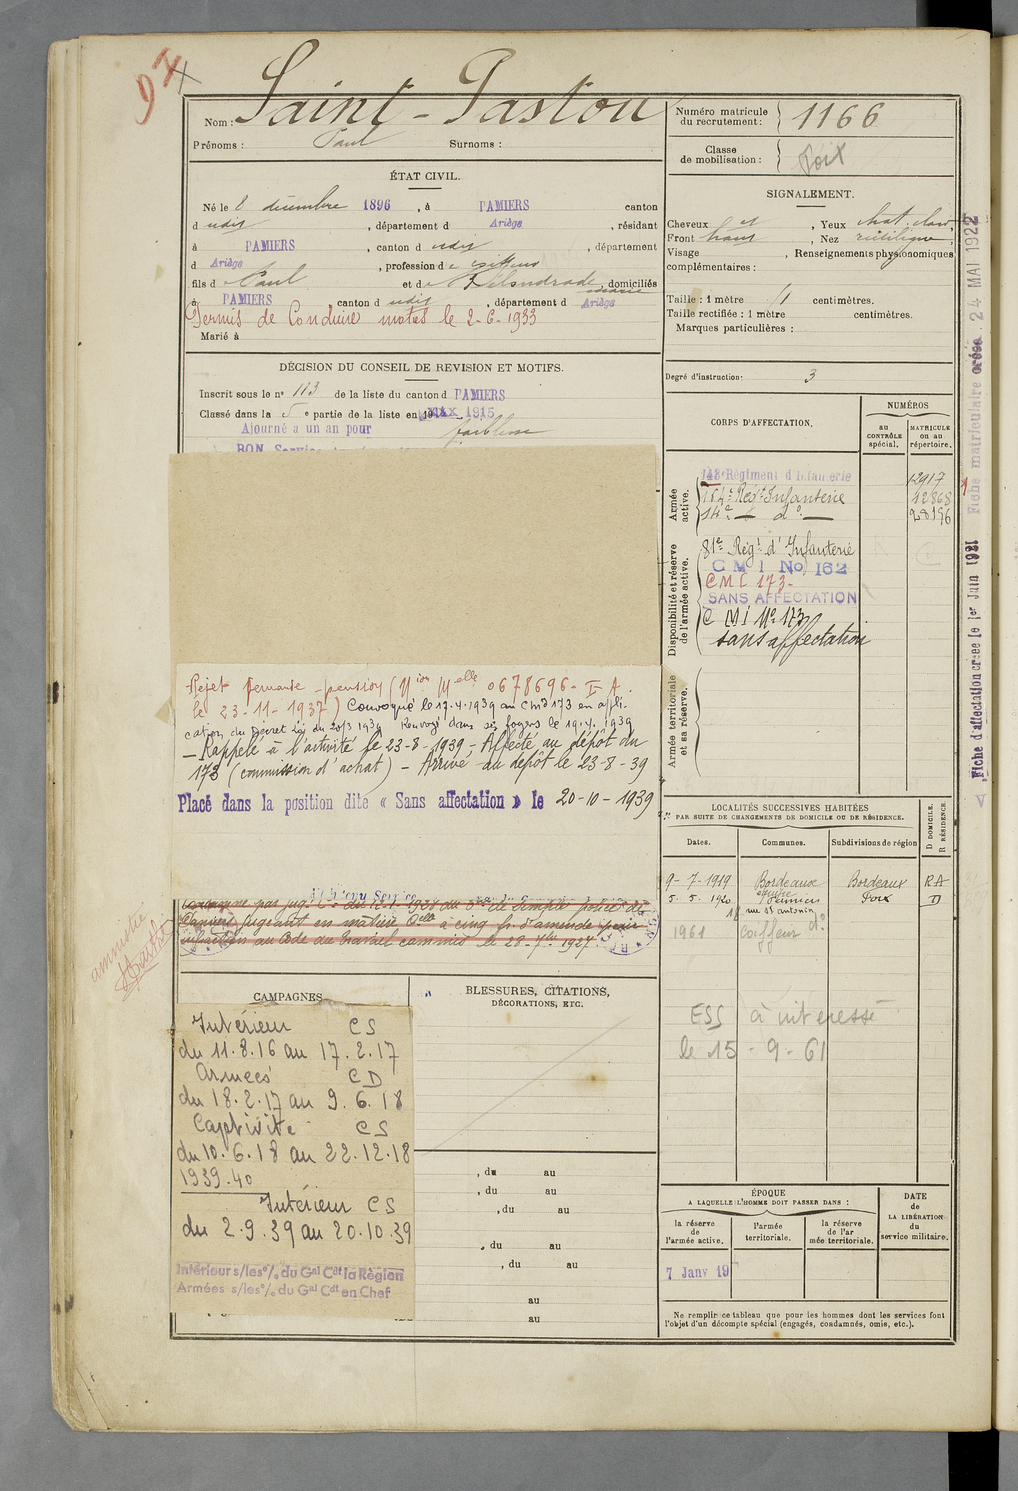 97
Nom : Saint-Paston
Prénoms : Paul Surnoms :
Numéro matricule du recrutement : 1166
Classe de mobilisation : Foix
ÉTAT CIVIL.
Né le 8 décembre 1896, à PAMIERS canton
dudit, département d Ariège, résidant
à PAMIERS, canton dudit, département
d Ariège, profession de coiffeur
fils de Paul et de, domiciliés
à PAMIERS canton dudit, département d Ariège
Permis de Conduire motos le 2-6-1933
Marié à
SIGNALEMENT.
Cheveux, Yeux chat. clair,
Front haut, Nez rectiligne,
Visage, Renseignements physionomiques
complémentaires :
Taille : 1 mètre centimètres.
Taille rectifiée : 1 mètre centimètres.
Marques particulières :
Degré d'instruction : 3
DÉCISION DU CONSEIL DE REVISION ET MOTIFS.
Inscrit sous le n° 113 de la liste du canton d PAMIERS
Classé dans la 5e partie de la liste en 1915
Ajourné a un an pour faiblesse
BON Service
CORPS D'AFFECTATION.
NUMÉROS
au CONTRÔLE spécial.
MATRICULE ou au répertoire.
Armée active.
143e Régiment d'Infanterie 12917
154e Régt Infanterie 12868
14e - do - 28196
Disponibilité et réserve de l'armée active.
81e Régt d'Infanterie
C M I No 162
CMI 173-
SANS AFFECTATION
C M I No 173
sans affectation
Armée territoriale et sa réserve.
Rejet demande pension (Non Melle 0678696- E A.
le 23-11-1937) Convoqué le 17.4.1939 au CMI 173 en appli-
cation du Décret Loi du 20/3 1939 Renvoyé dans ses foyers le 19.4.1939
- Rappelé à l'activité le 23-8-1939 - Affecté au dépôt du
173 (commission d'achat) - Arrivé au dépôt le 23-8-39
Placé dans la position dite « Sans affectation » le 20-10-1939
de simple police de
Pamiers jugeant en matière à cinq fr. d'amende pour
infraction au Code du Travail commis le 28-7bre 1927.
amnistié
LOCALITÉS SUCCESSIVES HABITÉES
PAR SUITE DE CHANGEMENTS DE DOMICILE OU DE RÉSIDENCE.
Dates. Communes. Subdivisions de région D DOMICILE. R RÉSIDENCE.
9-7-1919 Bordeaux Bordeaux RA
5. 5. 1920 Pamiers Foix D
rue St antonin
1961 coiffeur do
ESS à intéressé
le 15-9-61
CAMPAGNES
Intérieur CS
du 11.8.16 au 17.2.17
Armées CD
du 18.2.17 au 9.6.18
Captivité CS
du 10.6.18 au 22.12.18
1939-40
Intérieur CS
du 2.9.39 au 20.10.39
Intérieur s/les o/o du Gal Cdt la Région
Armées s/les o/o du Gal Cdt en Chef
BLESSURES, CITATIONS,
DÉCORATIONS, ETC.
, du au
, du au
, du au
, du au
, du au
au
au
ÉPOQUE
A LAQUELLE L'HOMME DOIT PASSER DANS :
la réserve de l'armée active.
l'armée territoriale.
la réserve de l'armée territoriale.
DATE de LA LIBÉRATION du service militaire.
7 Janv 19
Ne remplir ce tableau que pour les hommes dont les services font
l'objet d'un décompte spécial (engagés, condamnés, omis, etc.).
Fiche d'affectation créée le 1er Juin 1921 Fiche matriculaire créée 24 MAI 1922